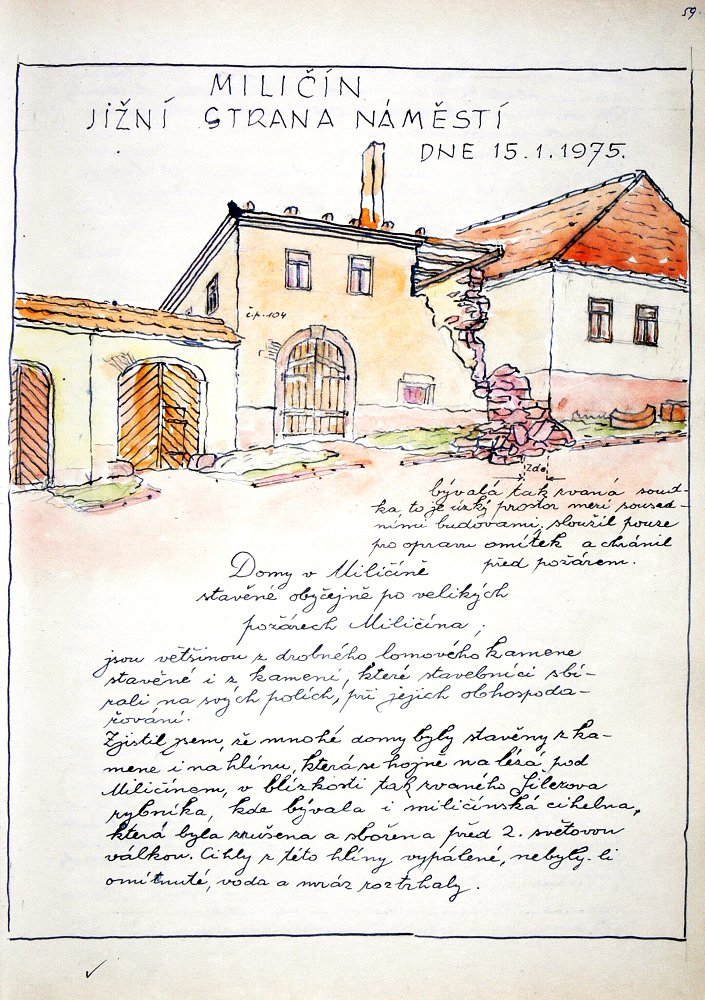 59.
MILIČÍN
JIŽNÍ STRANA NÁMĚSTÍ
DNE 15.1.1975.
č.p. 104
zde
bývalá tak zvaná soud-
ka, to je úzký prostor mezi soused-
ními budovami, sloužil pouze
pro opravu omítek a chránil
před požárem.
Domy v Miličíně
stavěné obyčejně po velikých
požárech Miličína;
jsou většinou z drobného lomového kamene
stavěné i z kamení, které stavebníci sbí-
rali na svých polích, při jejich obhospoda-
řování.
Zjistil jsem, že mnohé domy byly stavěny z ka-
mene i na hlínu, která se hojně nalézá pod
Miličínem, v blízkosti tak zvaného Šilerova
rybníka, kde bývala i miličínská cihelna,
která byla zrušena a sbořena před 2. světovou
válkou. Cihly z této hlíny vypálené, nebyly-li
omítnuté, voda a mráz roztrhaly.